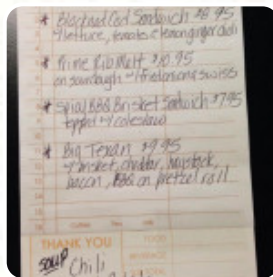 * Blackened Cod Sandwich $8.95
w/lettuce, tomatoes & lemon ginger aioli
* Prime Rib Melt $10.95
on sourdough w/ onions & swiss
* Spicy BBQ Brisket Sandwich $7.95
topped w/ coleslaw
* Big Texan $9.95
w/ brisket, cheddar, haystack,
bacon, BBQ on pretzel roll
THANK YOU
FOOD
BEVERAGE
SOUP
Chili